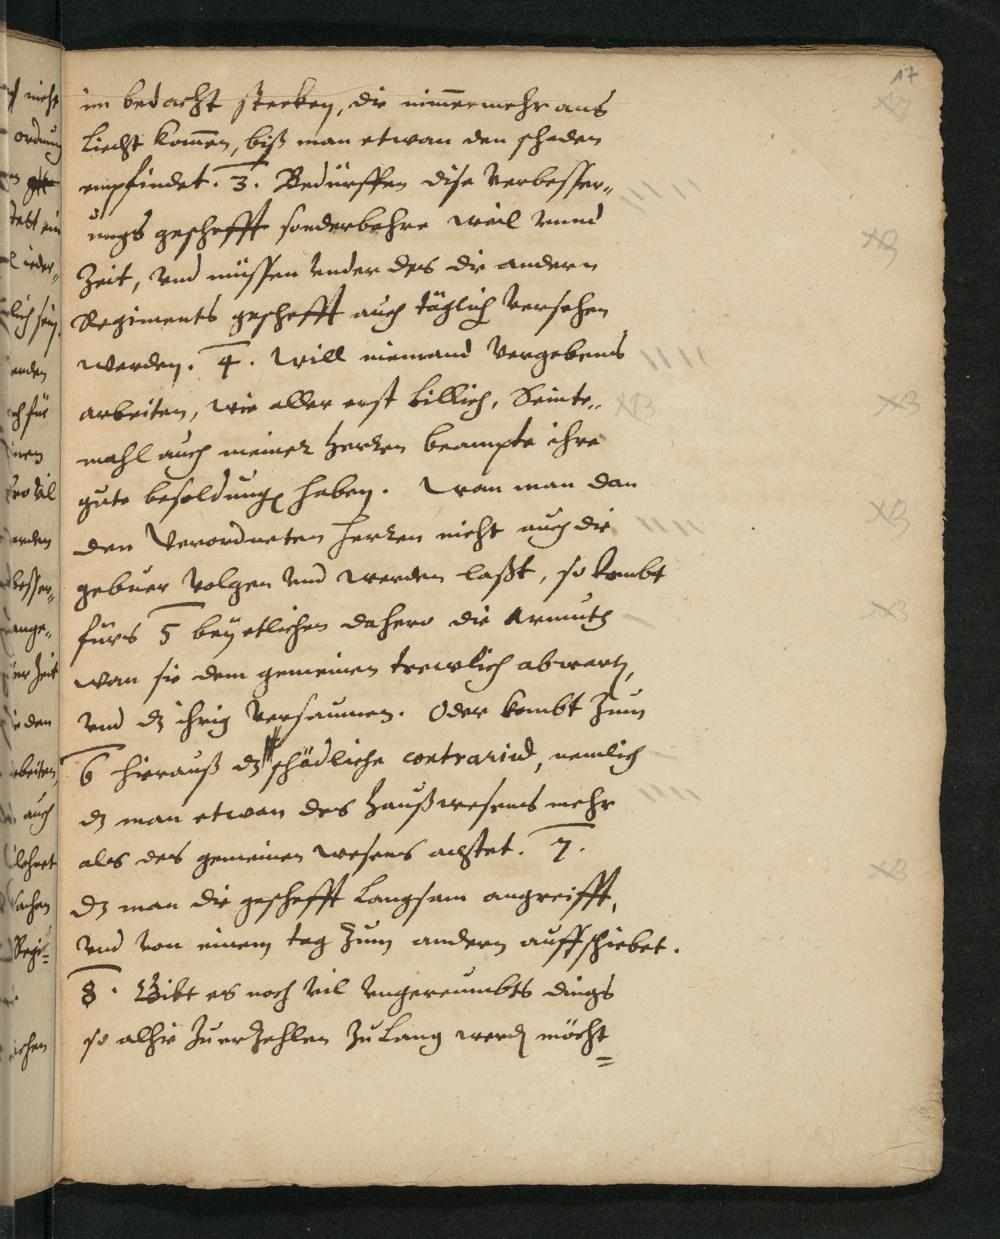 17
im bedacht stecken, die nim̄ermehr ans
Liecht kom̄en, biß man etwan den schaden
empfindet. 3. Bedürffen dise verbesser„
ungs geschefft sonderbahre weil vnnd
Zeit, vnd müssen vnder des die andern
Regiments geschefft auch täglich versehen
werden. 4. Will niemand vergebens
arbeiten, wie aller erst billich, Seinte„
mahl auch meiner Herren beampte ihre
gute besoldung haben. Wan man dan
den verordneten Herren nicht auch die
gebuer volgen vnd werden laßt, so kombt
fürs 5 beÿ etlichen dahero die Armuth
wan sie dem gemeinen trewlich abwartn,
vnd dz ihrig versaumen. Oder kombt zum
6 hierauß dz schädliche contrarium, nemlich
dz man etwan des Haußwesens mehr
als des gemeinen wesens achtet. 7.
dz man die geschefft Langsam angreifft,
vnd von einem tag zum andern auffschiebet.
8. Gibt es noch vil vngereumbts dings
so alhie zu erzehlen zu Lang werdn möcht
nicht
ordnung
ieder„
lich sein.
werden
vil
besser„
ange„
der Zeit
den
arbeiten,
auch
lohnet
sachen
Regi=